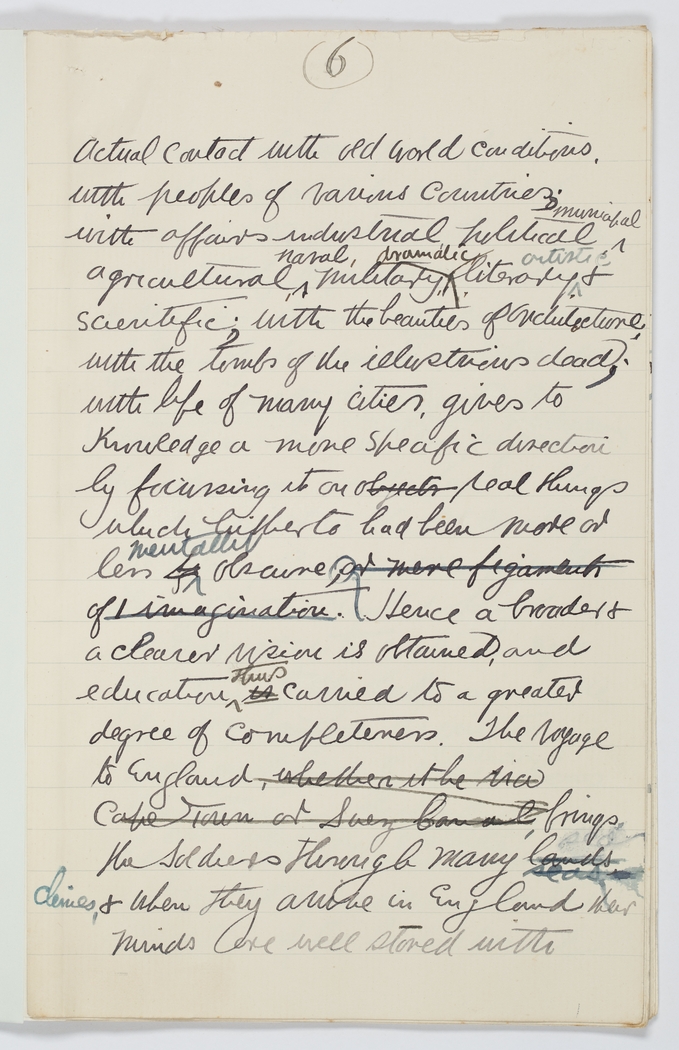 6
Actual contact with old world conditions,
with peoples of various countries;
municipal
with affairs industrial political
naval, dramatic artistic
agricultural, military, literary &
scientific; with the beauties of architecture,
with the tombs of the illustrious dead;
with life of many cities, gives to
Knowledge a more specific direction
by focussing it on objects real things
which hitherto had been more or
mentally
less obscure, or mere figaments
of imagination. Hence a broader &
a clearer vision is obtained, and
thus
education is carried to a greater
degree of completeness. The voyage
to England, whether it be via
Cape Town or Suez Canal, brings
the soldiers through many lands
seas
climes, & when they arrive in England their
minds are well stored with